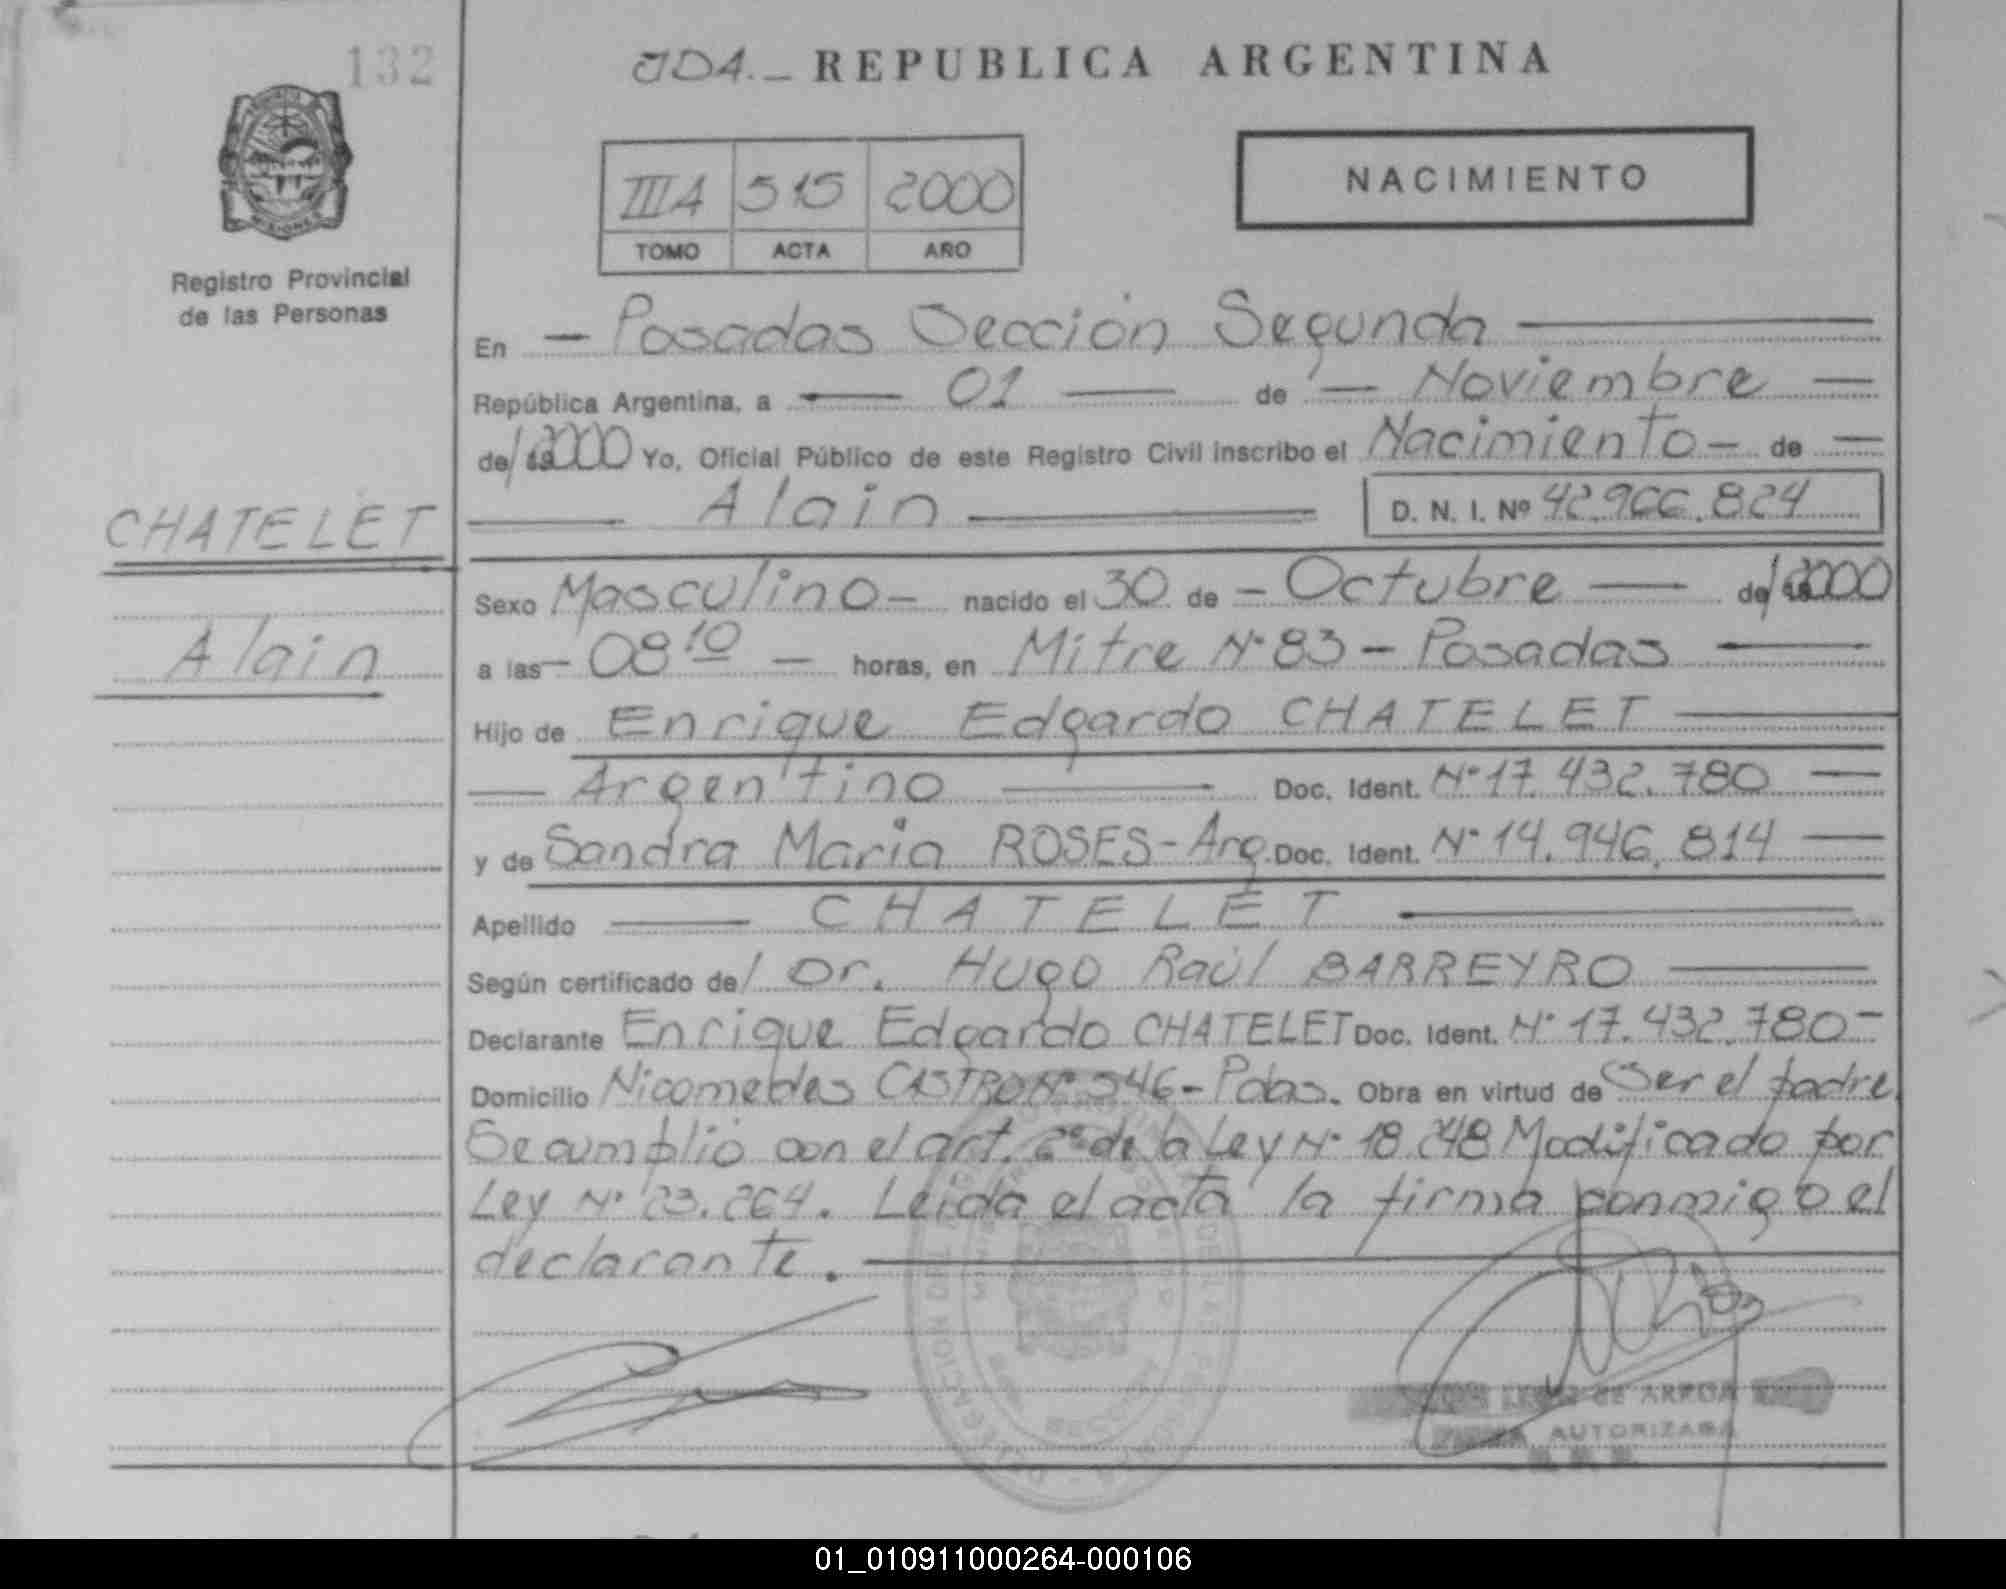 132
JDA.- REPUBLICA ARGENTINA
NACIMIENTO
IIIA 515 2000
TOMO ACTA AÑO
Registro Provincial
de las Personas
En - Posadas Sección Segunda
República Argentina, a 01 de - Noviembre
de/ 2000 Yo, Oficial Público de este Registro Civil inscribo el Nacimiento - de
Alain D. N. I. Nº 42.966.824
CHATELET
Sexo Masculino - nacido el 30 de - Octubre de/ 2000
Alain
a las - 08 10 - horas, en Mitre Nº 83 - Posadas
Hijo de Enrique Edgardo CHATELET
Argentino Doc. Ident. Nº 17.432.780
y de Sandra Maria ROSES - Arg. Doc. Ident. Nº 14.946.814
Apellido CHATELET
Según certificado de/ Dr. Hugo Raúl BARREYRO
Declarante Enrique Edgardo CHATELET Doc. Ident. Nº 17.432.780 -
Domicilio Nicomedes CASTRO Nº 346 - Pdas. Obra en virtud de Ser el padre.
Se cumplió con el art. 2º de la Ley Nº 18.248 Modificado por
Ley Nº 23.264. Leida el acta la firma conmigo el
declarante.
DE ARRUA
AUTORIZADA
01_010911000264-000106